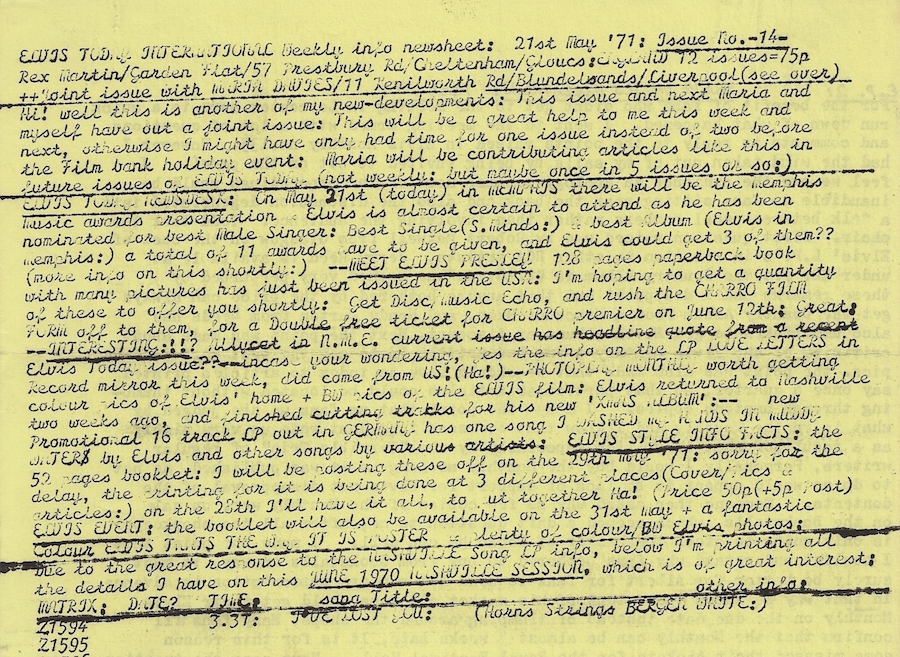 ELVIS TODAY INTERNATIONAL Weekly info newsheet: 21st May '71: Issue No.-14-
Rex Martin/Garden Flat/57 Prestbury Rd/Cheltenham/Gloucs:ENGLAND 12 issues=75p
++Joint issue with MARIA DAVIES/11 Kenilworth Rd/Blundelsands/Liverpool(see over)
Hi! well this is another of my new-developments: This issue and next Maria and
myself have out a joint issue: This will be a great help to me this week and
next, otherwise I might have only had time for one issue instead of two before
the Film bank holiday event: Maria will be contributing articles like this in
future issues of ELVIS TODAY (not weekly: but maybe once in 5 issues or so:)
ELVIS TODAY NEWSDESK: On May 21st (today) in MEMPHIS there will be the memphis
Music awards presentation Elvis is almost certain to attend as he has been
nominated for best Male Singer: Best Single(S.Minds:) & best Album (Elvis in
Memphis:) a total of 11 awards have to be given, and Elvis could get 3 of them??
(more info on this shortly:) --MEET ELVIS PRESLEY 128 pages paperback book
with many pictures has just been issued in the USA: I'm hoping to get a quantity
of these to offer you shortly: Get Disc/Music Echo, and rush the CHARRO FILM
FORM off to them, for a Double free ticket for CHARRO premier on June 12th: Great:
--INTERESTING:!!? Allycet in N.M.E. current issue has headline quote from a recent
Elvis Today issue??--incase your wondering, Yes the info on the LP LOVE LETTERS in
Record mirror this week, did come from US!(Ha!)--PHOTOPLAY MONTHLY worth getting
colour pics of Elvis' home + BW pics of the ELVIS film: Elvis returned to Nashville
two weeks ago, and finished cutting trakks for his new 'XMAS ALBUM':-- new
Promotional 16 track LP out in GERMANY has one song I WASHED MY HANDS IN MUDDY
WATERS by Elvis and other songs by various artists: ELVIS STYLE INFO FACTS: the
52 pages booklet: I will be posting these off on the 29th May '71: sorry for the
delay, the printing for it is being done at 3 different places(Cover/pics &
articles:) on the 28th I'll have it all, to put together Ha! (Price 50p(+5p Post)
ELVIS EVENT: the booklet will also be available on the 31st May + a fantastic
Colour ELVIS THATS THE WAY IT IS POSTER & plenty of colour/BW Elvis photos:
Due to the great response to the NASHVILLE Song LP info, below I'm printing all
the details I have on this JUNE 1970 NASHVILLE SESSION, which is of great interest:
MATRIX: DATE? TIME: song Title: other info:
21594 3.37: I'VE LOST YOU: (Horns Strings BERGEN WHITE:)
21595